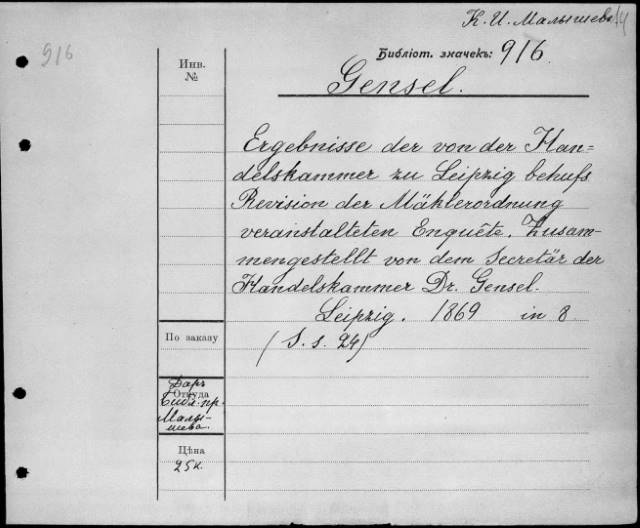 К. И. Малышева
916
Библіот. значекъ: 916
Инв.
№
Gensel.
Ergebnisse der von der Han=
delskammer zu Leipzig behufs
Revision der Mäklerordnung
veranstalteten Enquête. Zusam-
mengestellt von dem Secretär der
Handelskammer Dr. Gensel.
Leipzig. 1869 in 8
(S. s. 24)
По заказу
Даръ
Откуда
Библ. пр.
Малы-
шева.
Цѣна
25 к.